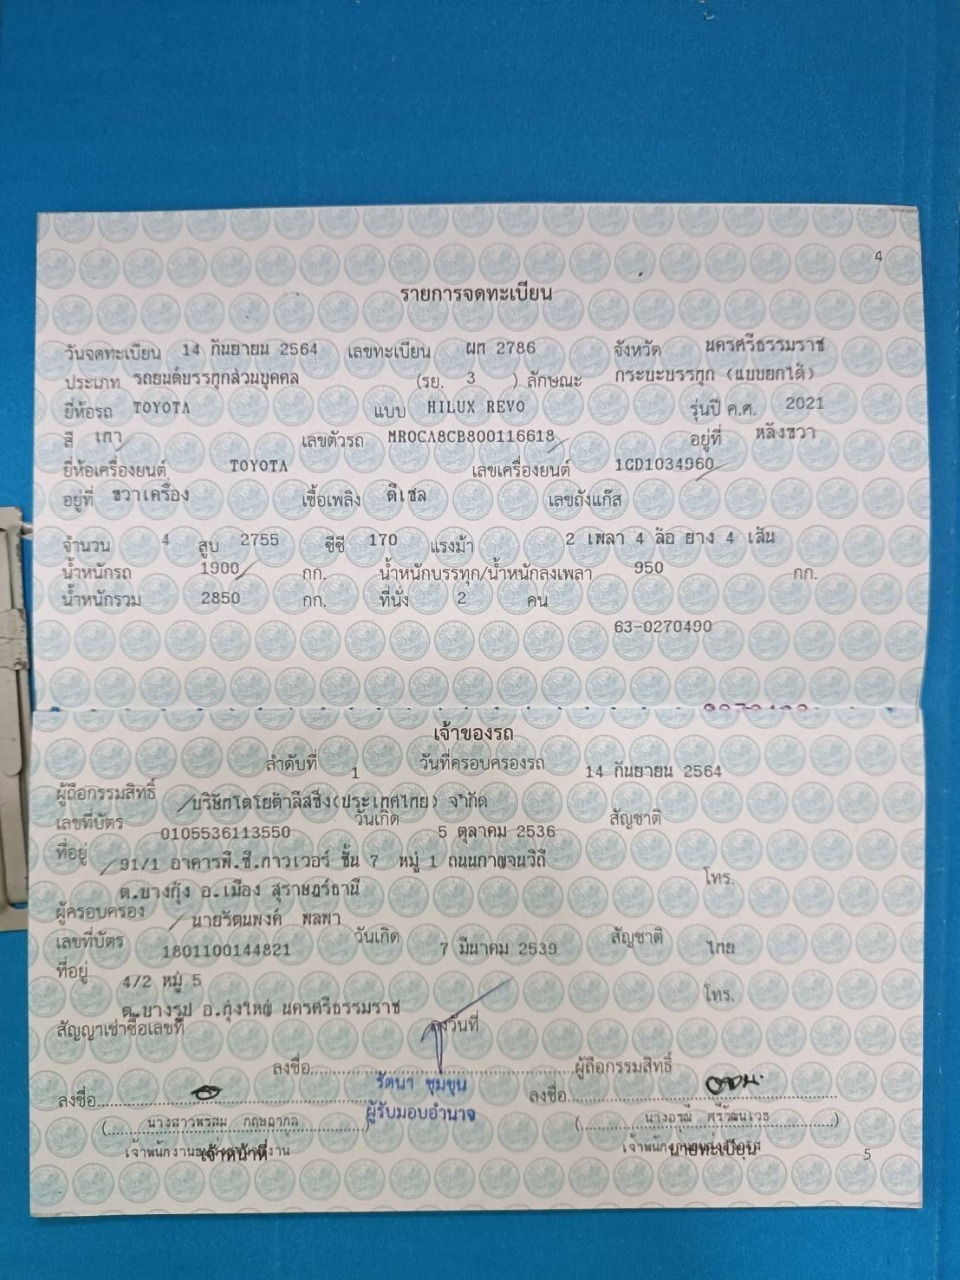 4
รายการจดทะเบียน
วันจดทะเบียน 14 กันยายน 2564 เลขทะเบียน ผก 2786 จังหวัด นครศรีธรรมราช
ประเภท รถยนต์บรรทุกส่วนบุคคล (รย. 3 ) ลักษณะ กระบะบรรทุก (แบบยกได้)
ยี่ห้อรถ TOYOTA แบบ HILUX REVO รุ่นปี ค.ศ. 2021
สี เทา เลขตัวรถ MR0CA8CB800116618 อยู่ที่ หลังขวา
ยี่ห้อเครื่องยนต์ TOYOTA เลขเครื่องยนต์ 1GD1034960
อยู่ที่ ขวาเครื่อง เชื้อเพลิง ดีเซล เลขถังแก๊ส
จำนวน 4 สูบ 2755 ซีซี 170 แรงม้า 2 เพลา 4 ล้อ ยาง 4 เส้น
น้ำหนักรถ 1900 กก. น้ำหนักบรรทุก/น้ำหนักลงเพลา 950 กก.
น้ำหนักรวม 2850 กก. ที่นั่ง 2 คน
63-0270490
เจ้าของรถ
ลำดับที่ 1 วันที่ครอบครองรถ 14 กันยายน 2564
ผู้ถือกรรมสิทธิ์ บริษัทโตโยต้าลีสซิ่ง(ประเทศไทย) จำกัด
เลขที่บัตร 0105536113550 วันเกิด 5 ตุลาคม 2536 สัญชาติ
ที่อยู่ 91/1 อาคารพี.ซี.ทาวเวอร์ ชั้น 7 หมู่ 1 ถนนกาญจนวิถี
โทร.
ต.บางกุ้ง อ.เมือง สุราษฎร์ธานี
ผู้ครอบครอง นายรัตนพงค์ พลพา
เลขที่บัตร 1801100144821 วันเกิด 7 มีนาคม 2539 สัญชาติ ไทย
ที่อยู่ 4/2 หมู่ 5
โทร.
ต.บางรูป อ.ทุ่งใหญ่ นครศรีธรรมราช
สัญญาเช่าซื้อเลขที่ ลงวันที่
ลงชื่อ ผู้ถือกรรมสิทธิ์
รัตนา ชุมขุน
ผู้รับมอบอำนาจ
ลงชื่อ ลงชื่อ
(นางสาวพรสม กฤษฎากุล) (นางอรุณี ศรีวัฒนเวช)
เจ้าหน้าที่ นายทะเบียน
5